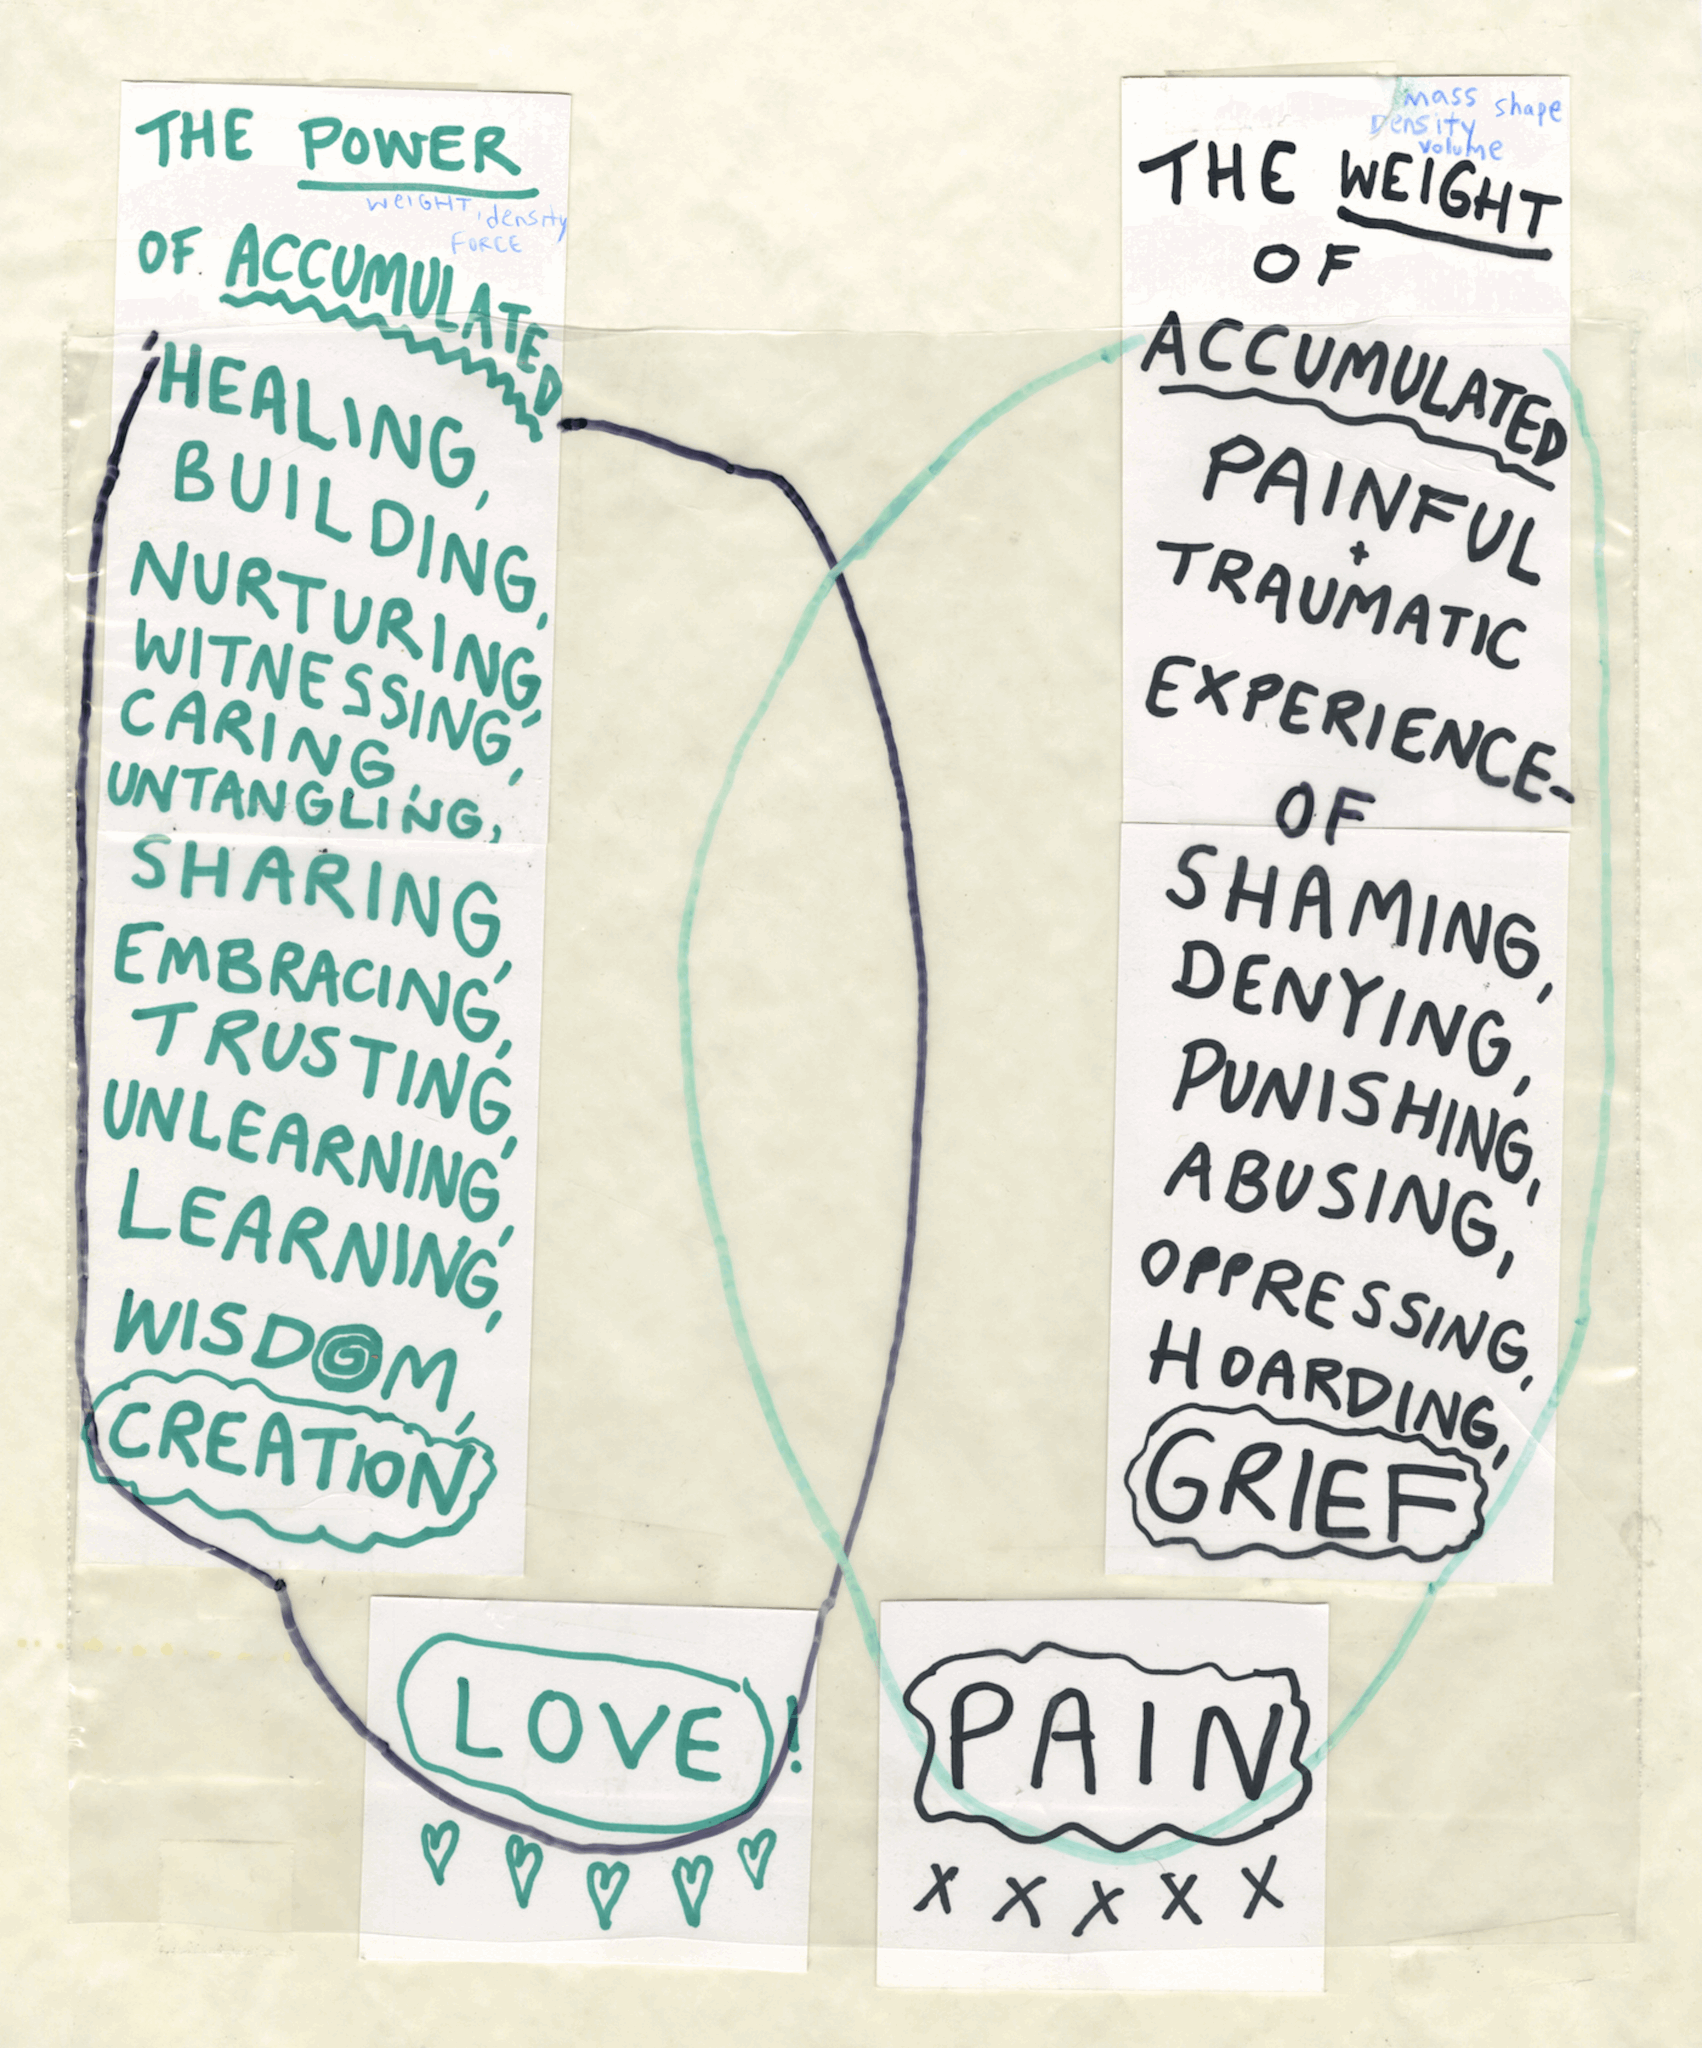 THE POWER
WEIGHT, density
FORCE
OF ACCUMULATED
HEALING,
BUILDING,
NURTURING,
WITNESSING,
CARING,
UNTANGLING,
SHARING,
EMBRACING,
TRUSTING,
UNLEARNING,
LEARNING,
WISDOM,
CREATION
LOVE!
mass shape
Density
volume
THE WEIGHT
OF
ACCUMULATED
PAINFUL
+
TRAUMATIC
EXPERIENCE-
OF
SHAMING,
DENYING,
PUNISHING,
ABUSING,
OPPRESSING,
HOARDING,
GRIEF
PAIN
X X X X X